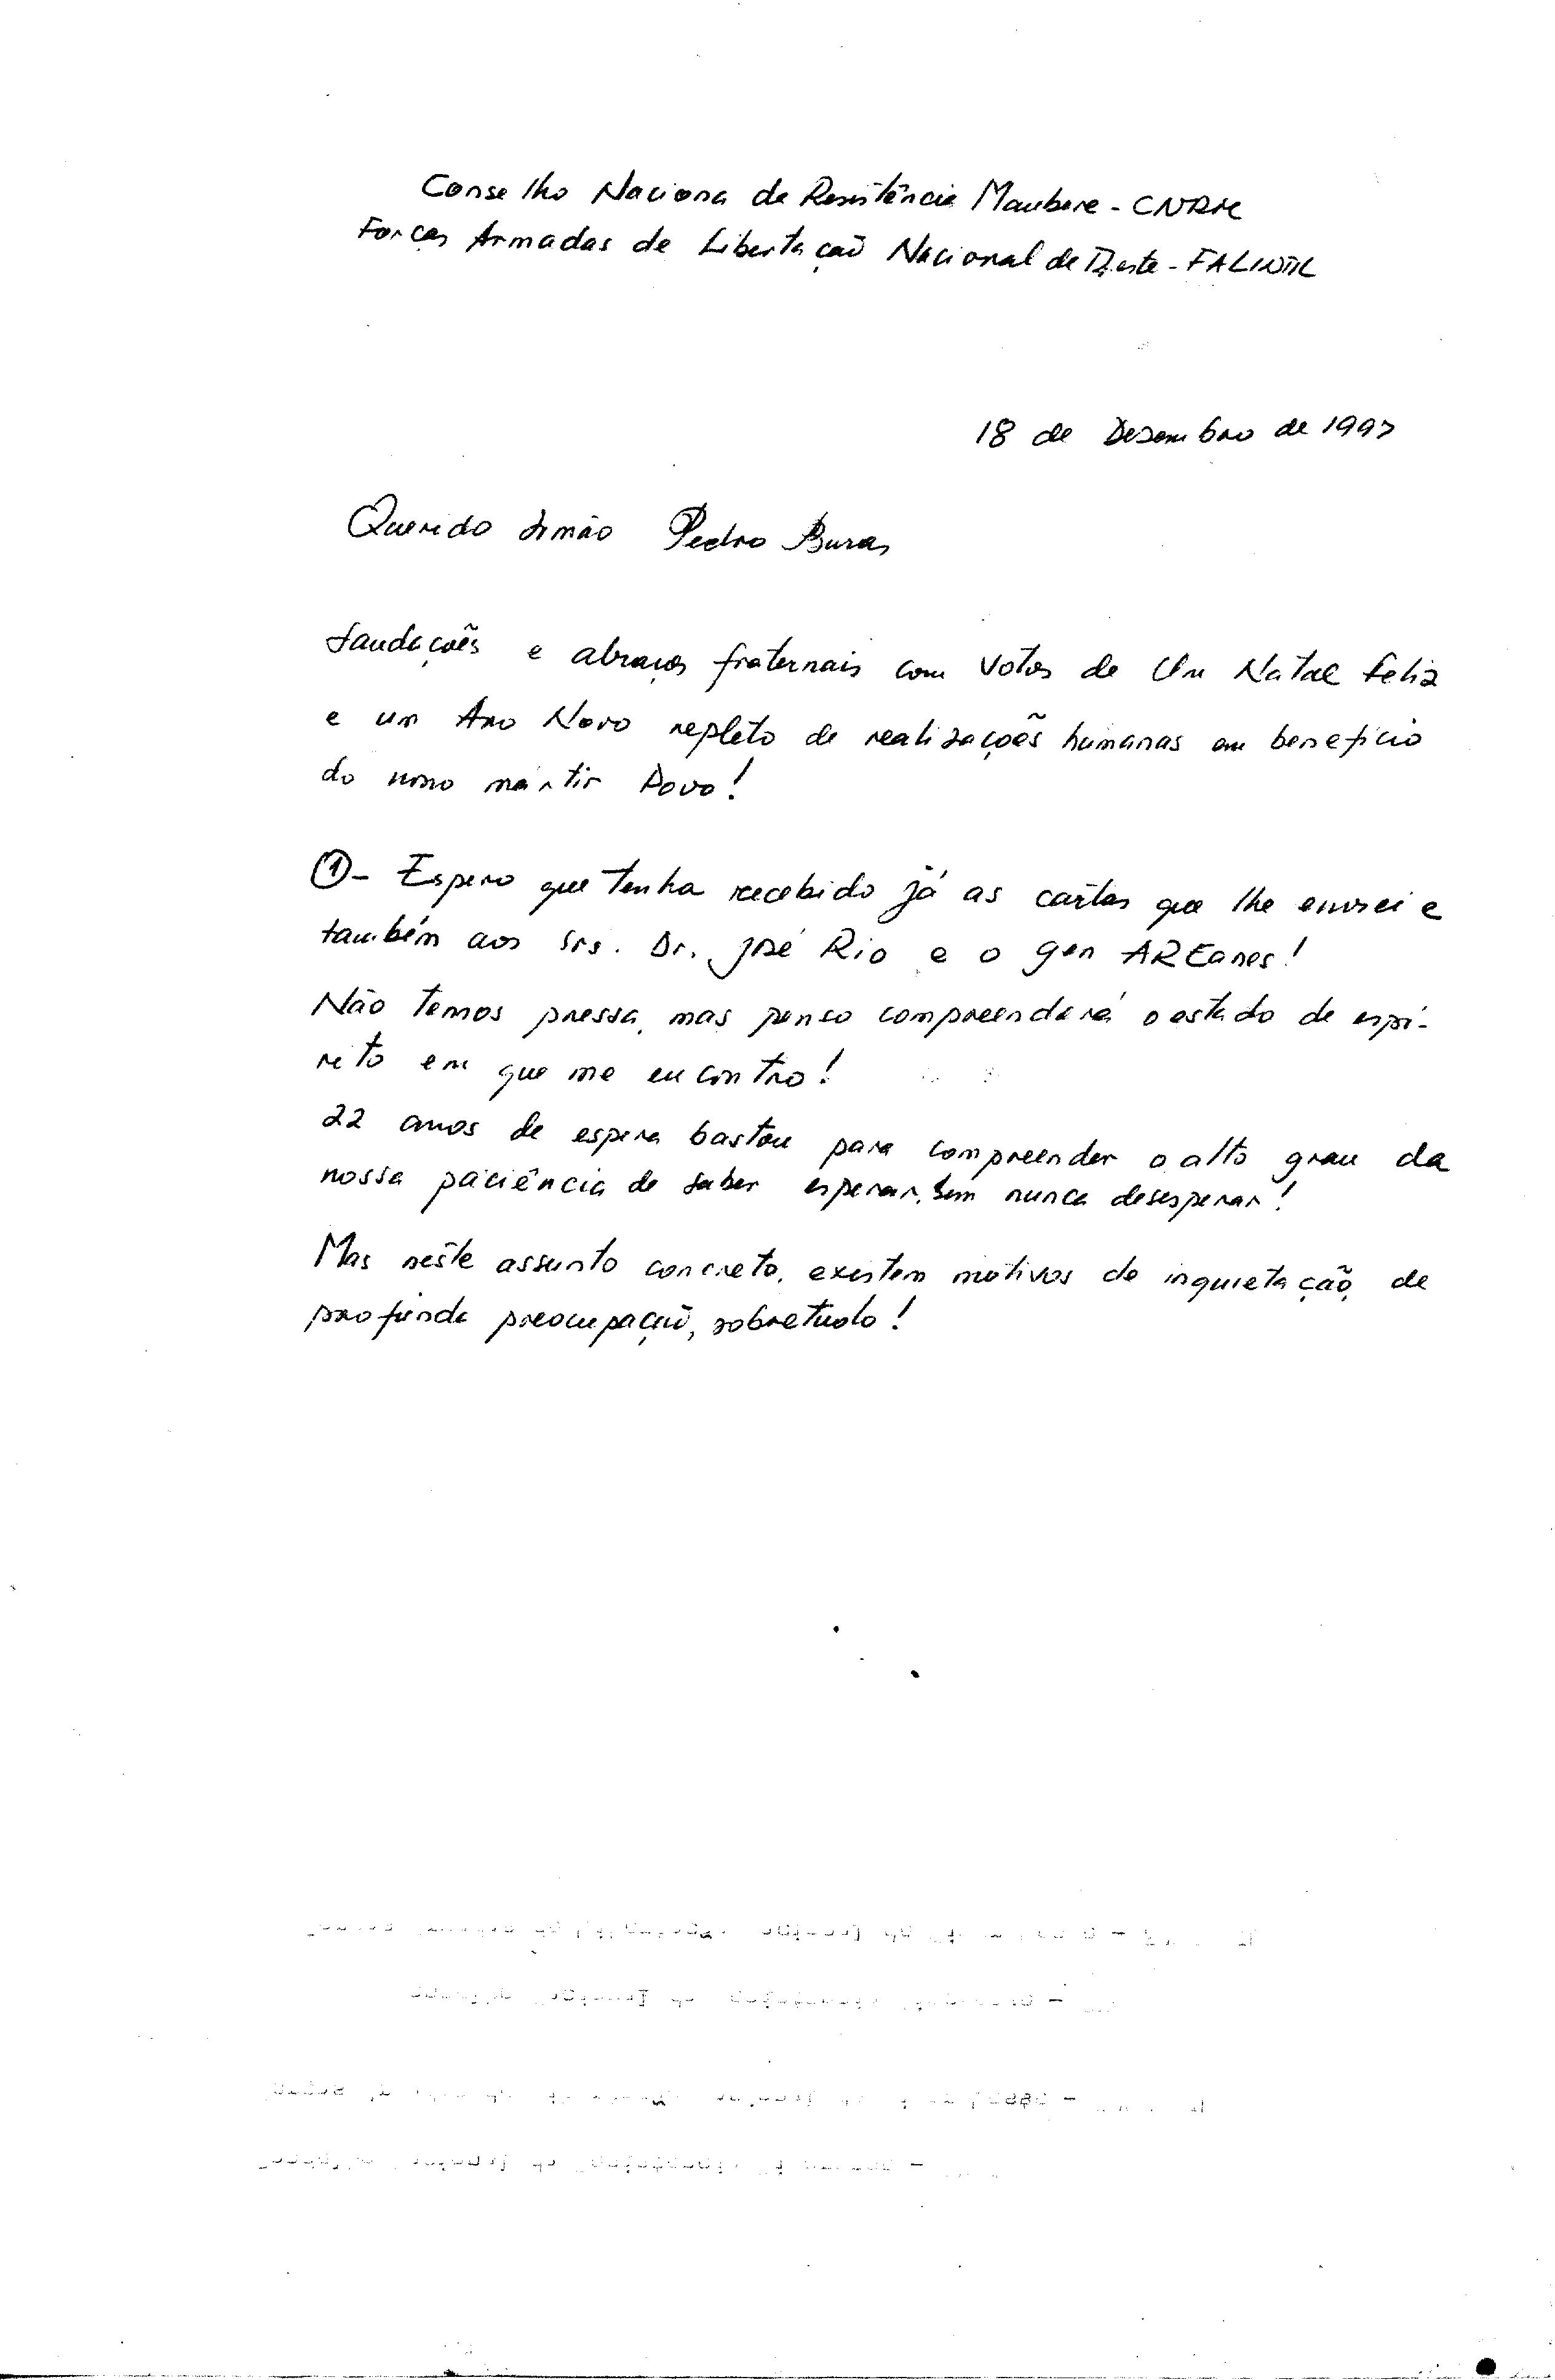 Conselho Naciona de Resistência Maubere - CNRM
Forças Armadas de Libertação Nacional de Timor Leste - FALINTIL
18 de Dezembro de 1997
Querido Irmão Pedro
Saudações e abraços fraternais com votos de Um Natal feliz
e um Ano Novo repleto de realizações humanas em benefício
do nosso mártir Povo!
①- Espero que tenha recebido já as cartas que lhe enviei e
também aos Srs. Dr. José Rio e o gen AREanes!
Não temos pressa, mas penso compreenderá o estado de espí-
rito em que me encontro!
22 anos de espera bastou para compreender o alto grau da
nossa paciência de saber esperar, sem nunca desesperar!
Mas neste assunto concreto, existem motivos de inquietação, de
profunda preocupação, sobretudo!